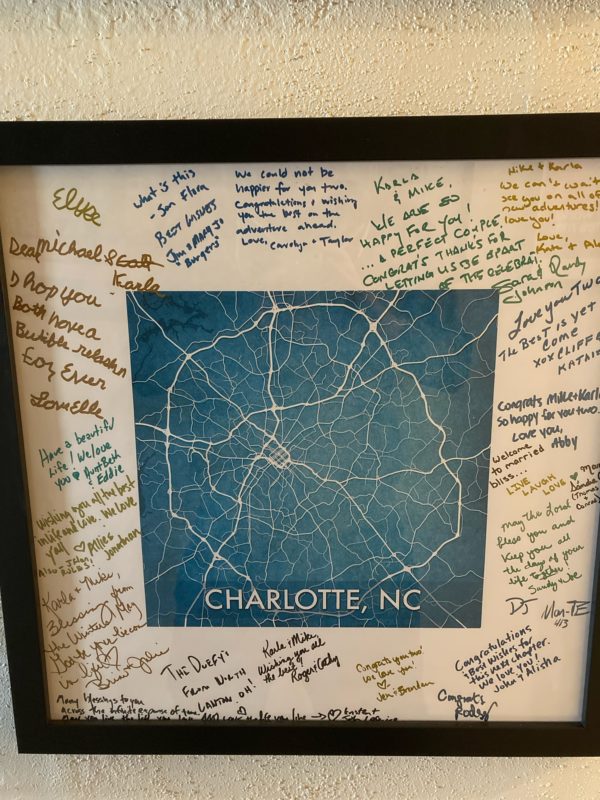 Elyse
What is this
- Jon Flora
Best Wishes
Jim & Mary Jo
Burgers
We could not be
happier for you two.
Congratulations & wishing
you the best on the
adventure ahead.
Love, Carolyn + Taylor
KARLA
& MIKE,
WE ARE SO
HAPPY FOR YOU!
... A PERFECT COUPLE.
CONGRATS THANKS FOR
LETTING US BE APART
OF THE CELEBRAT
Sara & Randy
Johnson
Mike + Karla
We can't wait
see you on all of
new adventures!
love you!
Love,
Dear Michael &
Karla
I hop you
Both have a
Ever
Love you Two
The BEST is yet
Come
Congrats Mike + Karla
So happy for you two.
Love you,
Abby
Welcome
to married
bliss...
LIVE
LAUGH
LOVE
(Thomas
+
Have a beautiful
Life! We love
you Aunt Beth
& Eddie
Wishing you all the best
in life and love. We love
yall
Jonathan
May the Lord
bless you and
Keep you all
the days of your
life together!
Karla & Mike,
Blessings from
in life
CHARLOTTE, NC
DJ
4/13
THE DUFFY'S
FROM NORTH
OH!
Karla & Mike,
Wishing you all
the best!
Roger & Cathy
Congrats you two!
We love you!
Jen & Brandon
Congratulations
& Best Wishes for
this next chapter.
We love you!
John & Alisha
Congrats
Rodey
Many blessings to you
across the infinite expanse of time
May you live the life you love AND love the life you live